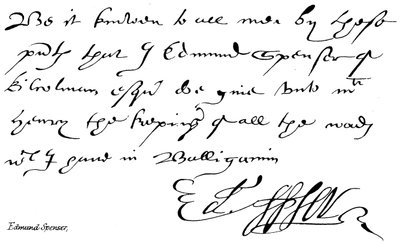 Be it knowen to all men by these
pñts that I Edmund Spenser of
Kilcolman esqr. doe give unto mr
Henry the keping of all the wods
wch I have in Balliganim
Ed Spser
Edmund Spenser,